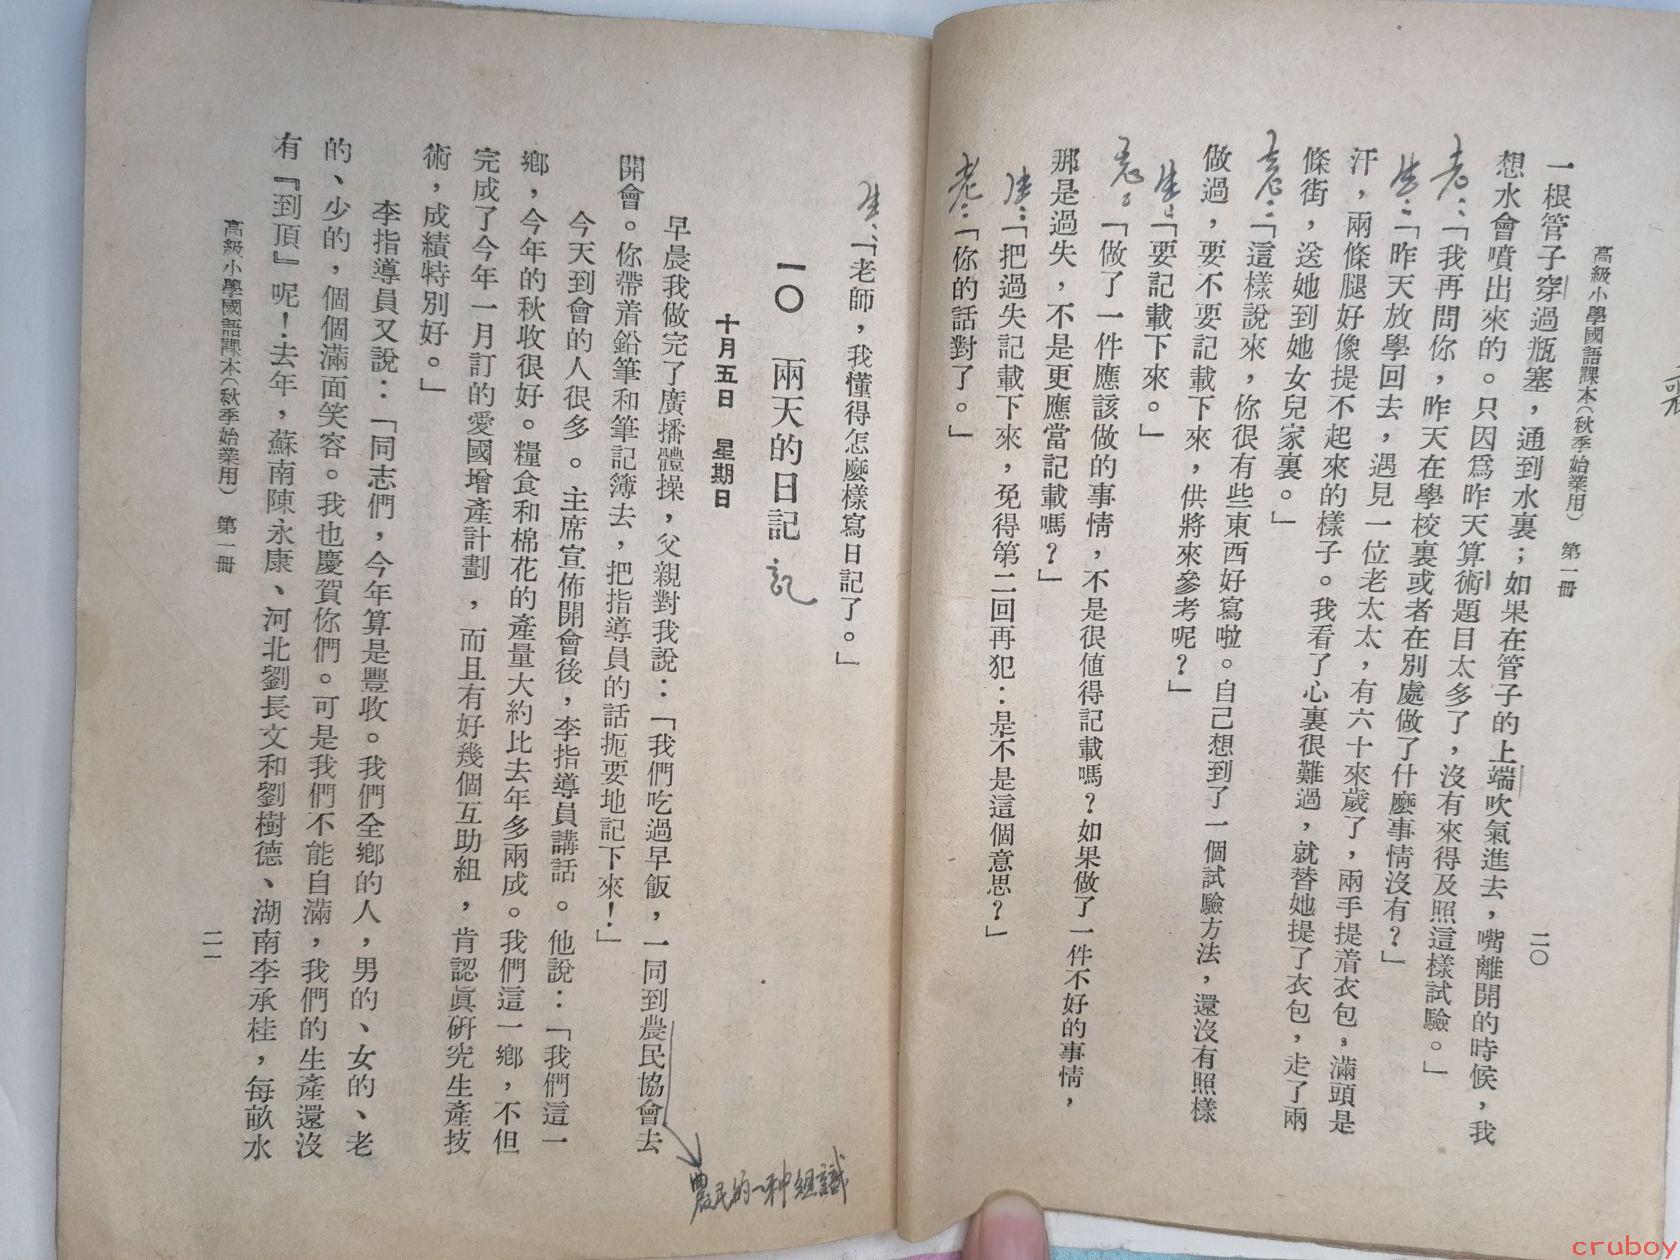 高級小學國語課本(秋季始業用) 第一冊
二〇
一根管子穿過瓶塞，通到水裏；如果在管子的上端吹氣進去，嘴離開的時候，我
想水會噴出來的。只因爲昨天算術題目太多了，沒有來得及照這樣試驗。」
老：「我再問你，昨天在學校裏或者在別處做了什麼事情沒有？」
生：「昨天放學回去，遇見一位老太太，有六十來歲了，兩手提着衣包，滿頭是
汗，兩條腿好像提不起來的樣子。我看了心裏很難過，就替她提了衣包，走了兩
條街，送她到她女兒家裏。」
老：「這樣說來，你很有些東西好寫啦。自己想到了一個試驗方法，還沒有照樣
做過，要不要記載下來，供將來參考呢？」
生：「要記載下來。」
老：「做了一件應該做的事情，不是很值得記載嗎？如果做了一件不好的事情，
那是過失，不是更應當記載嗎？」
生：「把過失記載下來，免得第二回再犯：是不是這個意思？」
老：「你的話對了。」
生：「老師，我懂得怎麼樣寫日記了。」
一〇 兩天的日記 記
十月五日 星期日
早晨我做完了廣播體操，父親對我說：「我們吃過早飯，一同到農民協會去
農民的一种組識
開會。你帶着鉛筆和筆記簿去，把指導員的話扼要地記下來！」
今天到會的人很多。主席宣佈開會後，李指導員講話。他說：「我們這一
鄉，今年的秋收很好。糧食和棉花的產量大約比去年多兩成。我們這一鄉，不但
完成了今年一月訂的愛國增產計劃，而且有好幾個互助組，肯認眞硏究生產技
術，成績特別好。」
李指導員又說：「同志們，今年算是豐收。我們全鄉的人，男的、女的、老
的、少的，個個滿面笑容。我也慶賀你們。可是我們不能自滿，我們的生產還沒
有『到頂』呢！去年，蘇南陳永康、河北劉長文和劉樹德、湖南李承桂，每畝水
高級小學國語課本(秋季始業用) 第一冊
二一
cruboy